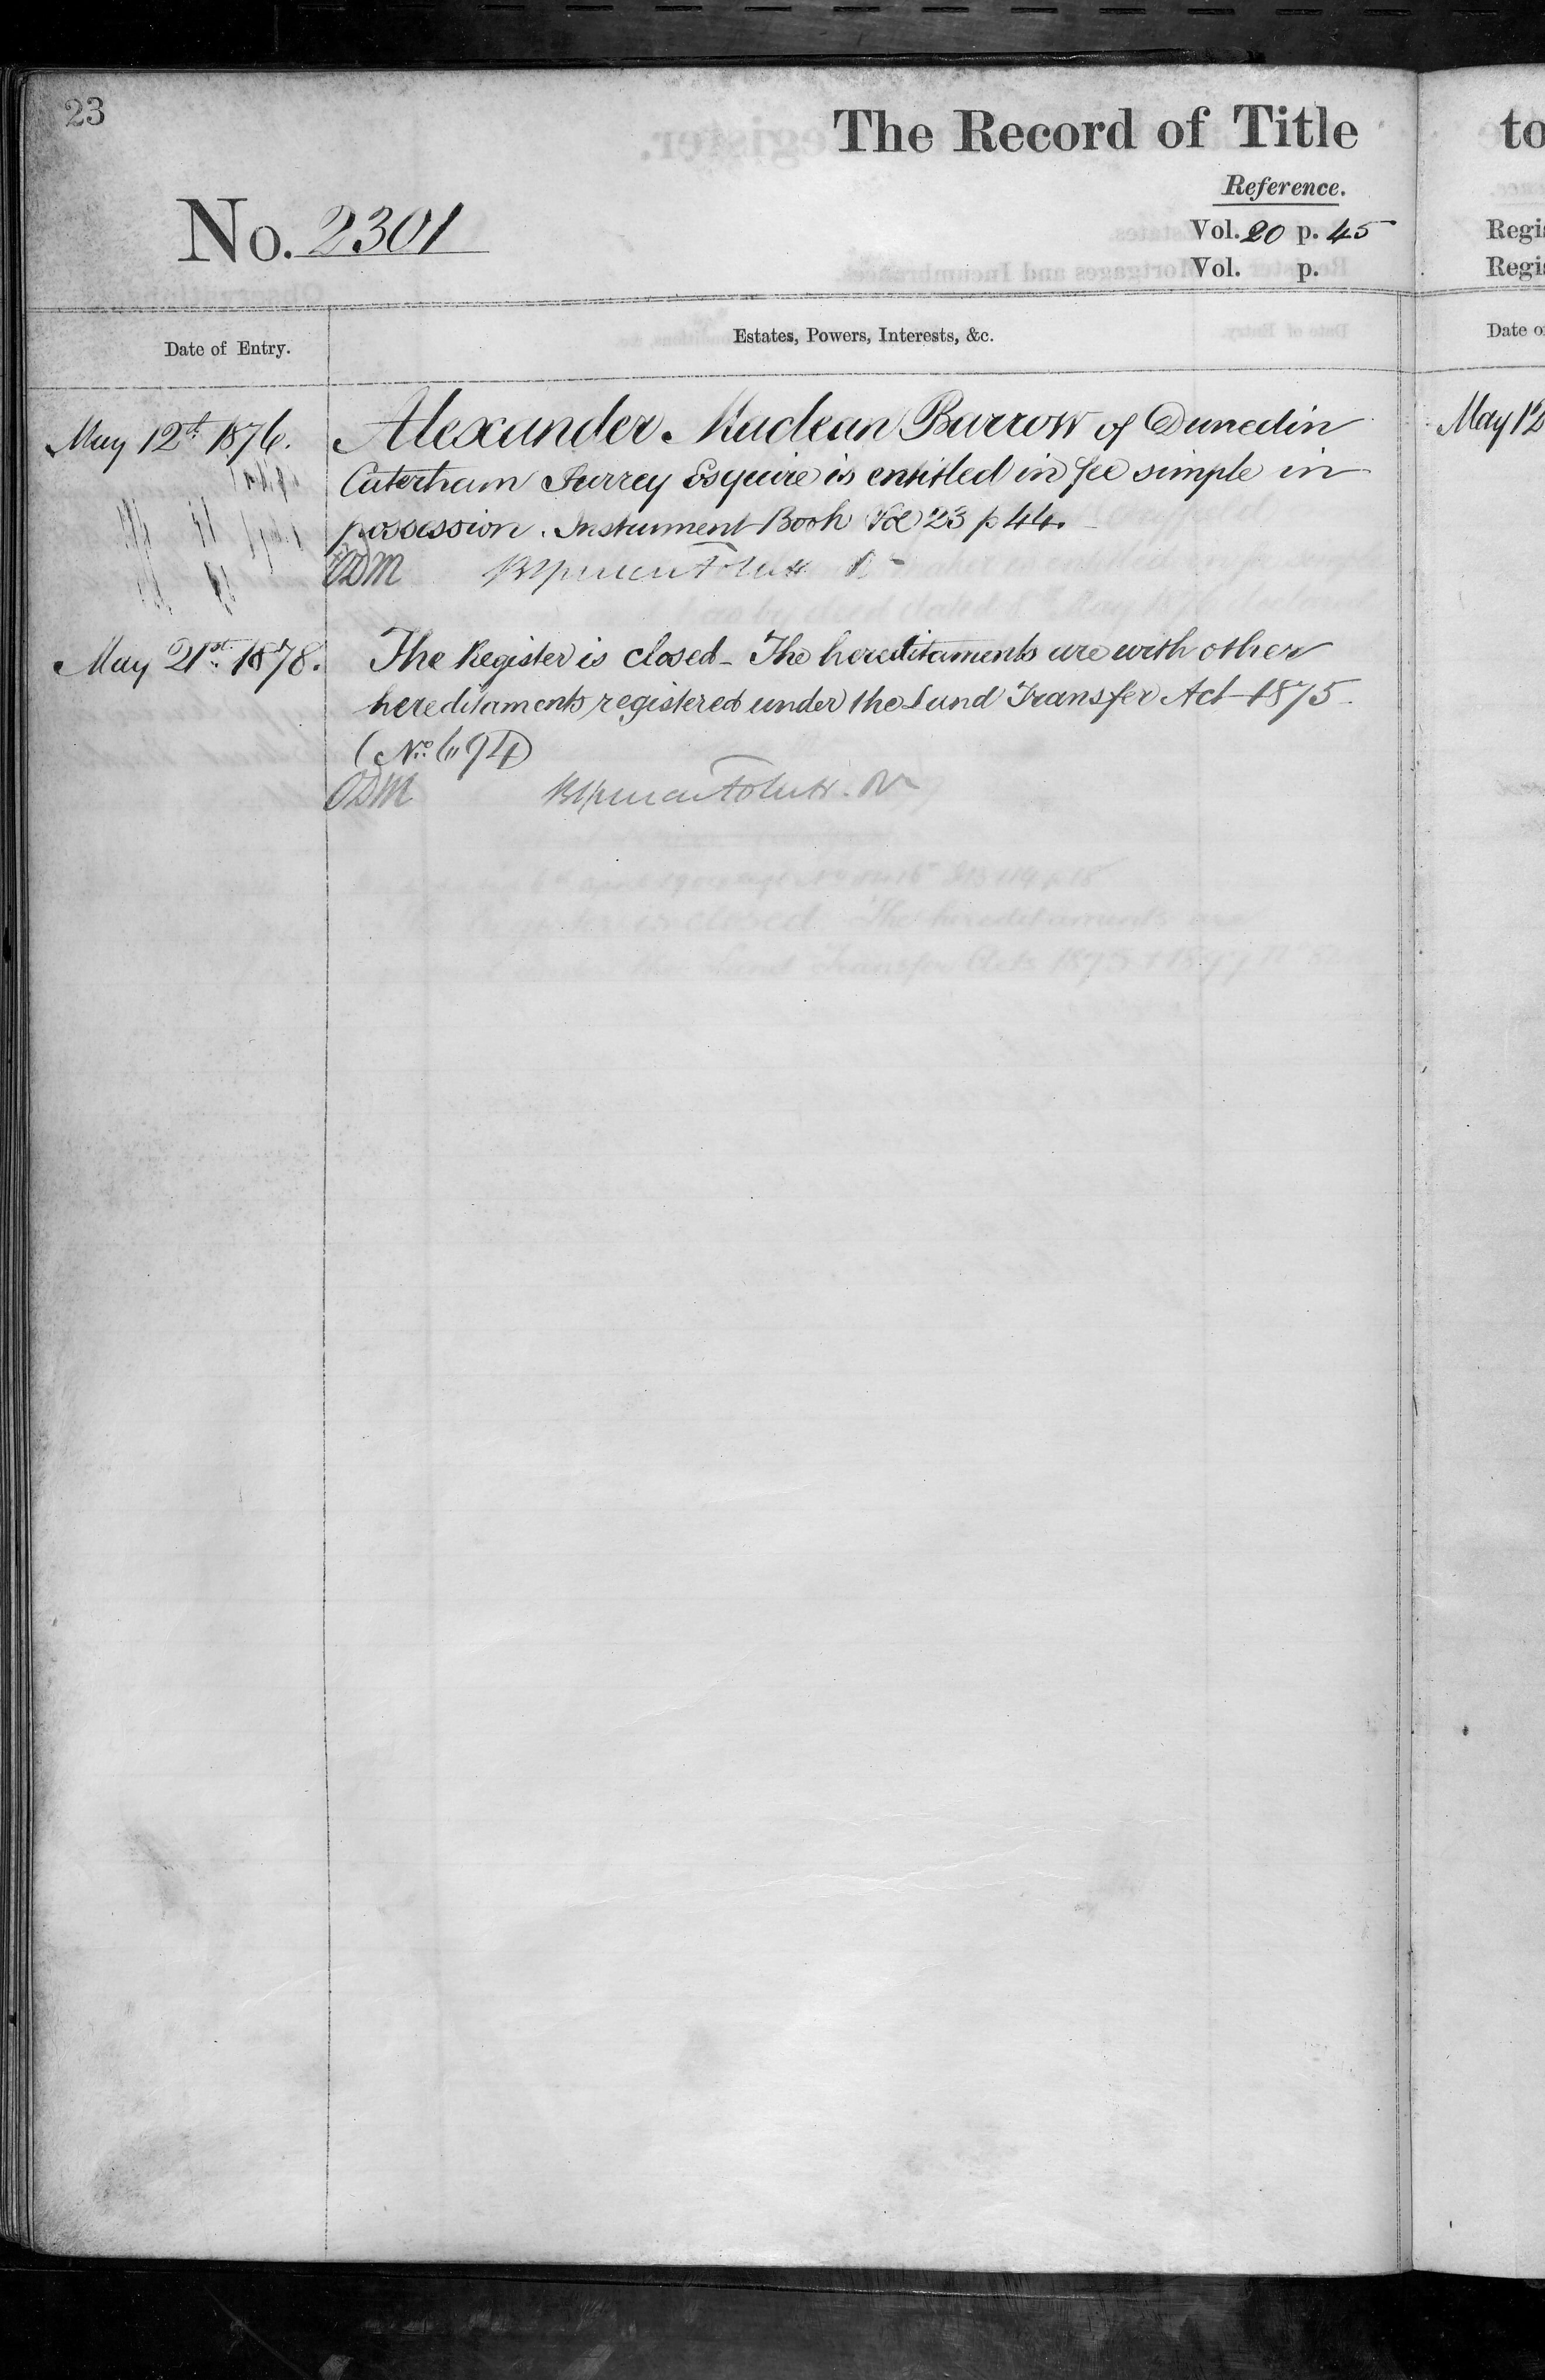 23
The Record of Title
Reference.
No. 2301
Vol. 20 p. 45
Vol. p.
Date of Entry.
Estates, Powers, Interests, &c.
May 12th 1876.
Alexander Maclean Barrow of Dunedin
Caterham Surrey Esquire is entitled in fee simple in
possession. Instrument Book Vol 23 p 44.
ODM
May 21st 1878.
The Register is closed - The hereditaments are with other
hereditaments registered under the Land Transfer Act 1875
(No. 694)
ODM
to
Regis
Regis
Date of
May 12